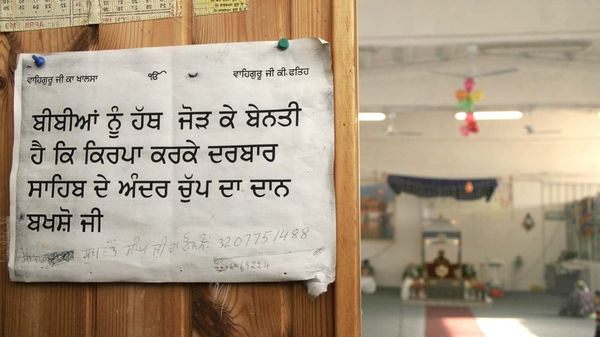 ਵਾਹਿਗੁਰੂ ਜੀ ਕਾ ਖਾਲਸਾ ੴ ਵਾਹਿਗੁਰੂ ਜੀ ਕੀ ਫਤਿਹ
ਬੀਬੀਆਂ ਨੂੰ ਹੱਥ ਜੋੜ ਕੇ ਬੇਨਤੀ
ਹੈ ਕਿ ਕਿਰਪਾ ਕਰਕੇ ਦਰਬਾਰ
ਸਾਹਿਬ ਦੇ ਅੰਦਰ ਚੁੱਪ ਦਾ ਦਾਨ
ਬਖਸ਼ੋ ਜੀ
ਸਿੰਘ ਜੀ ਦਾ 3207751488